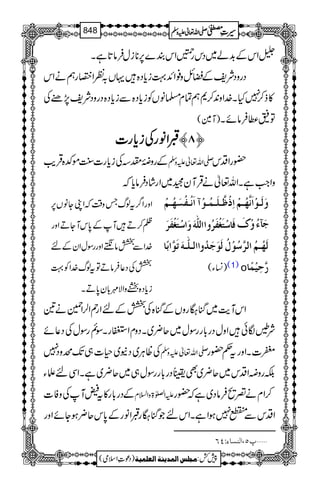 سیرتِ مصطفیٰ صلی اللہ تعالیٰ علیہ وسلم 848
جلیل اس کے بدلے میں دس رحمتیں اس بندے پر نازل فرماتا ہے۔
درود شریف کے فضائل و فوائد بہت زیادہ ہیں یہاں بنظر اختصار ہم نے اس
کا ذکر نہیں کیا۔ خداوند کریم ہم تمام مسلمانوں کو زیادہ سے زیادہ درود شریف پڑھنے کی
توفیق عطا فرمائے۔ (آمین)
﴿۸﴾ قبر انور کی زیارت
حضور اقدس صلی اللہ تعالیٰ علیہ وسلم کے روضۂ مقدسہ کی زیارت سنت مؤکدہ قریب
بواجب ہے۔ اللہ تعالیٰ نے قرآن مجید میں ارشاد فرمایا کہ
وَلَوْ اَنَّهُمْ اِذْ ظَّلَمُوْۤا اَنْفُسَهُمْ
جَآءُوْكَ فَاسْتَغْفَرُوا اللّٰهَ وَاسْتَغْفَرَ
لَهُمُ الرَّسُوْلُ لَوَجَدُوا اللّٰهَ تَوَّابًا
رَّحِیْمًا ○ (1) (نساء)
اور اگر یہ لوگ جس وقت کہ اپنی جانوں پر
ظلم کرتے ہیں آپ کے پاس آجاتے اور
خدا سے بخشش مانگتے اور رسول ان کے لئے
بخشش کی دعا فرماتے تو یہ لوگ خدا کو بہت
زیادہ بخشنے والا مہربان پاتے۔
اس آیت میں گناہگاروں کے گناہ کی بخشش کے لئے ارحم الراحمین نے تین
شرطیں لگائی ہیں اول دربار رسول میں حاضری۔ دوم استغفار۔ سوم رسول کی دعائے
مغفرت۔ اور یہ حکم حضور صلی اللہ تعالیٰ علیہ وسلم کی ظاہری دنیوی حیات ہی تک محدود نہیں
بلکہ روضہ اقدس میں حاضری بھی یقیناً دربار رسول ہی میں حاضری ہے۔ اسی لئے علماء
کرام نے تصریح فرما دی ہے کہ حضور علیہ الصلوٰۃ والسلام کے دربار کا یہ فیض آپ کی وفات
اقدس سے منقطع نہیں ہوا ہے۔ اس لئے جو گناہگار قبر انور کے پاس حاضر ہو جائے اور
1 ……پ ۵، النساء: ٦٤
پیش کش: مجلس المدینۃ العلمیۃ (دعوتِ اسلامی)